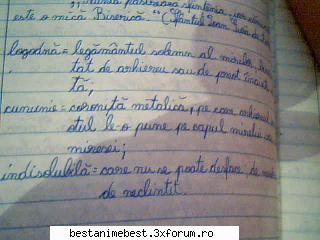 este o mică Biserică." (Sfântul Ioan
logodnă = legământul solemn al
tat de arhiereu sau de preot
tă,
cununie = coroniță metalică, pe care arhiereul
otul le-o pune pe capul mirelui
miresei;
indisolubilă = care nu se poate desface, de
de neclintit.
bestanimebest.3xforum.ro